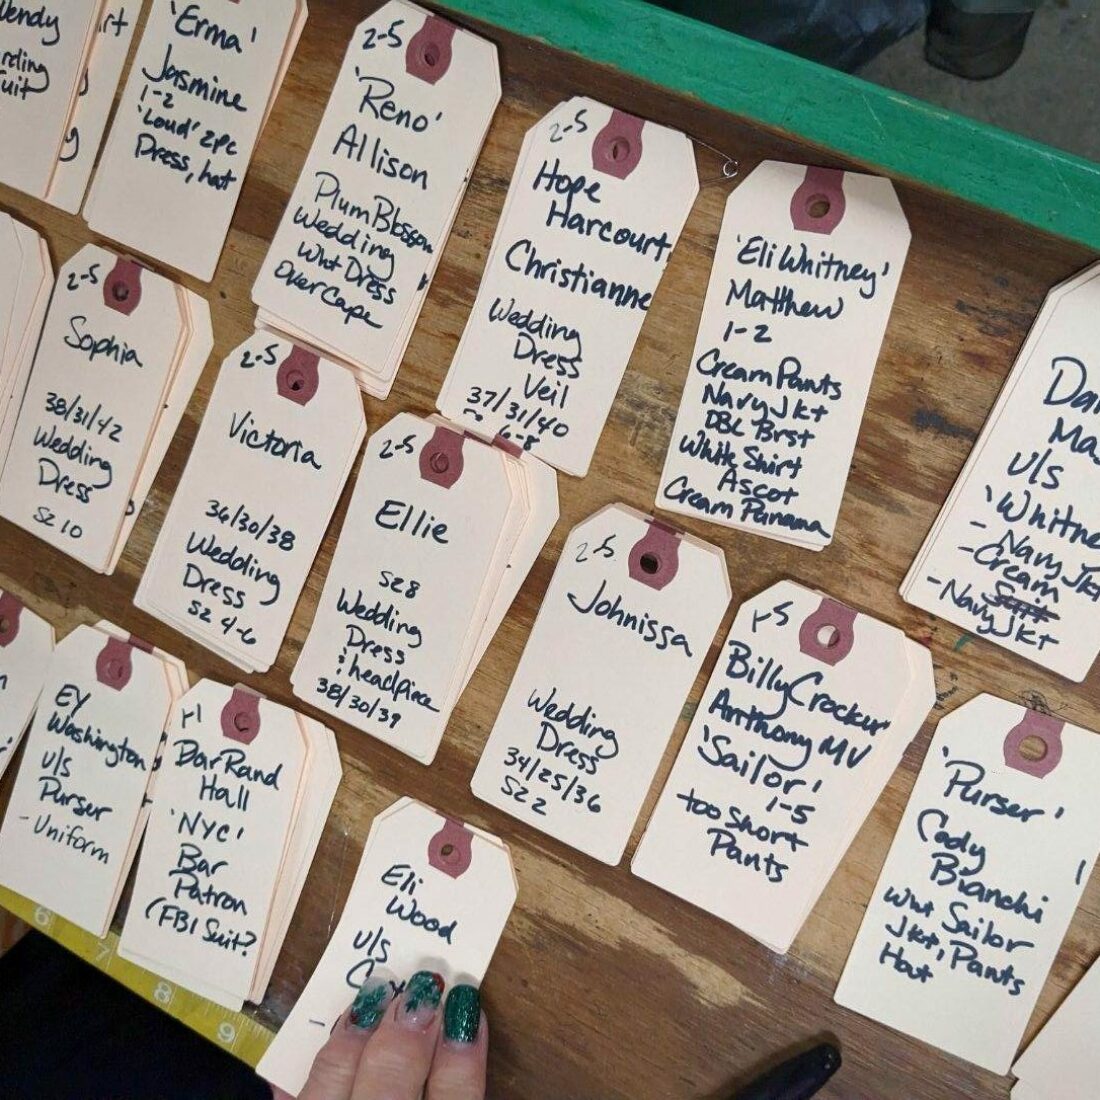 endy
rding
uit
rt
'Erma'
Jasmine
1-2
'Loud' 2pc
Dress, hat
2-5
'Reno'
Allison
Plum Blossom
Wedding
Wht Dress
Over Cape
2-5
Hope
Harcourt
Christianne
Wedding
Dress
Veil
37/31/40
6-8
'Eli Whitney'
Matthew
1-2
Cream Pants
Navy Jkt
DBL Brst
White Shirt
Ascot
Cream Panama
Dar
Ma
u/s
'Whitne
- Navy Jkt
- Cream
- Navy Jkt
2-5
Sophia
38/31/42
Wedding
Dress
SZ 10
2-5
Victoria
36/30/38
Wedding
Dress
SZ 4-6
2-5
Ellie
SZ 8
Wedding
Dress
: headpiece
38/30/39
2-5
Johnissa
Wedding
Dress
34/25/36
SZ 2
Billy Crocker
Anthony MV
'Sailor'
1-5
too short
Pants
'Purser'
Cody
Bianchi
Wht Sailor
Jkt, Pants
Hat
EY
Washington
u/s
Purser
- Uniform
DarRand
Hall
'NYC'
Bar
Patron
(FBI Suit?
Eli
Wood
u/s
C
6
7
8
9